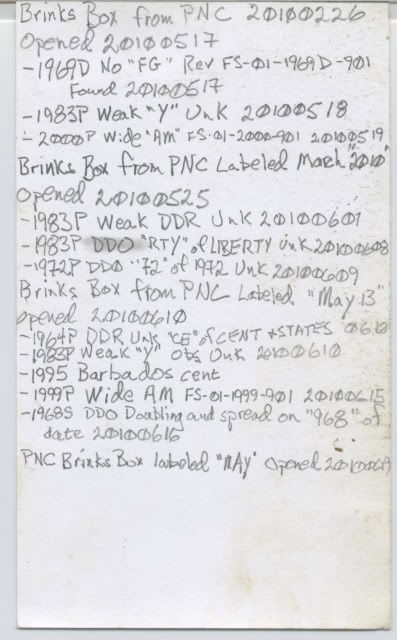 Brinks Box from PNC 20100226
Opened 20100517
-1969D No "FG" Rev FS-01-1969D-901
Found 20100517
-1983P Weak "Y" Unk 20100518
-2000P Wide "AM" FS-01-2000-901 20100519
Brinks Box from PNC Labeled March "2010"
Opened 20100525
-1983P Weak DDR Unk 20100601
-1983P DDO "RTY" of LIBERTY Unk 20100608
-1972P DDO "72" of 1972 Unk 20100609
Brinks Box from PNC Labeled "May 13"
opened 20100610
-1964P DDR Unk "CE" of CENT + STATES 0610
-1983P Weak "Y" obs Unk 20100610
-1995 Barbados cent
-1999P Wide AM FS-01-1999-901 20100615
-1968S DDO Doubling and spread on "968" of
date 20100616
PNC Brinks Box labeled "MAY" Opened